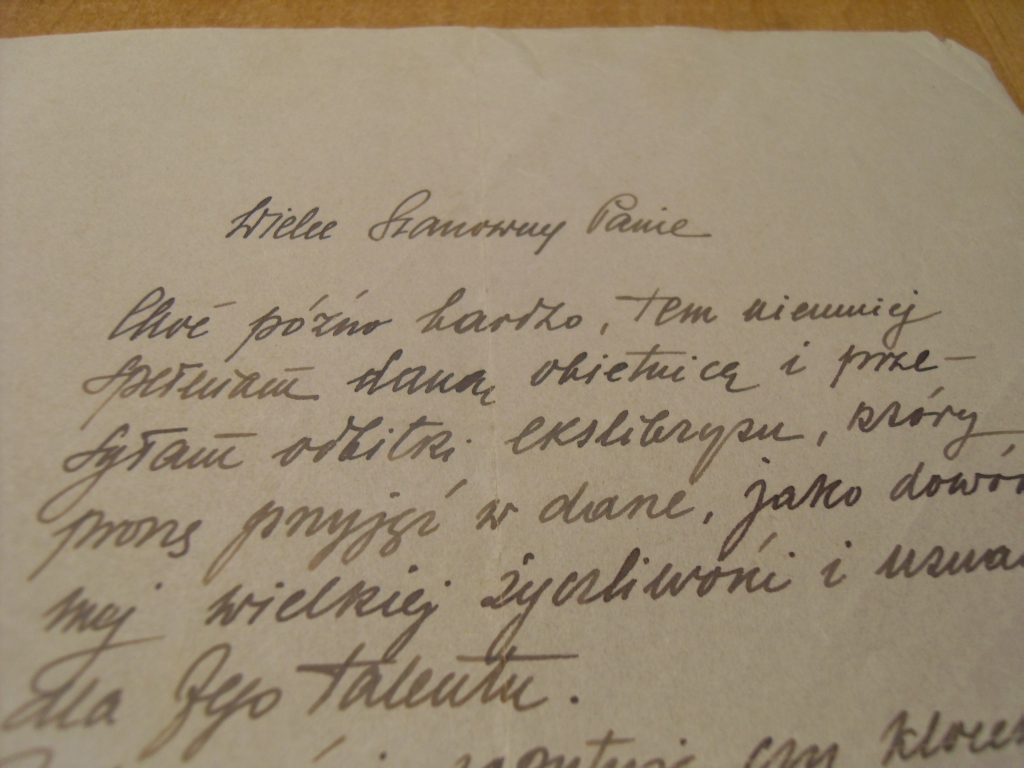 Wielce Szanowny Panie
Choć późno bardzo, tem niemniej
spełniam daną obietnicę i prze-
syłam odbitki ekslibrysu, który
proszę przyjąć w dane, jako dowód
mej wielkiej życzliwości i uzna
dla Jego talentu.
czy klocek